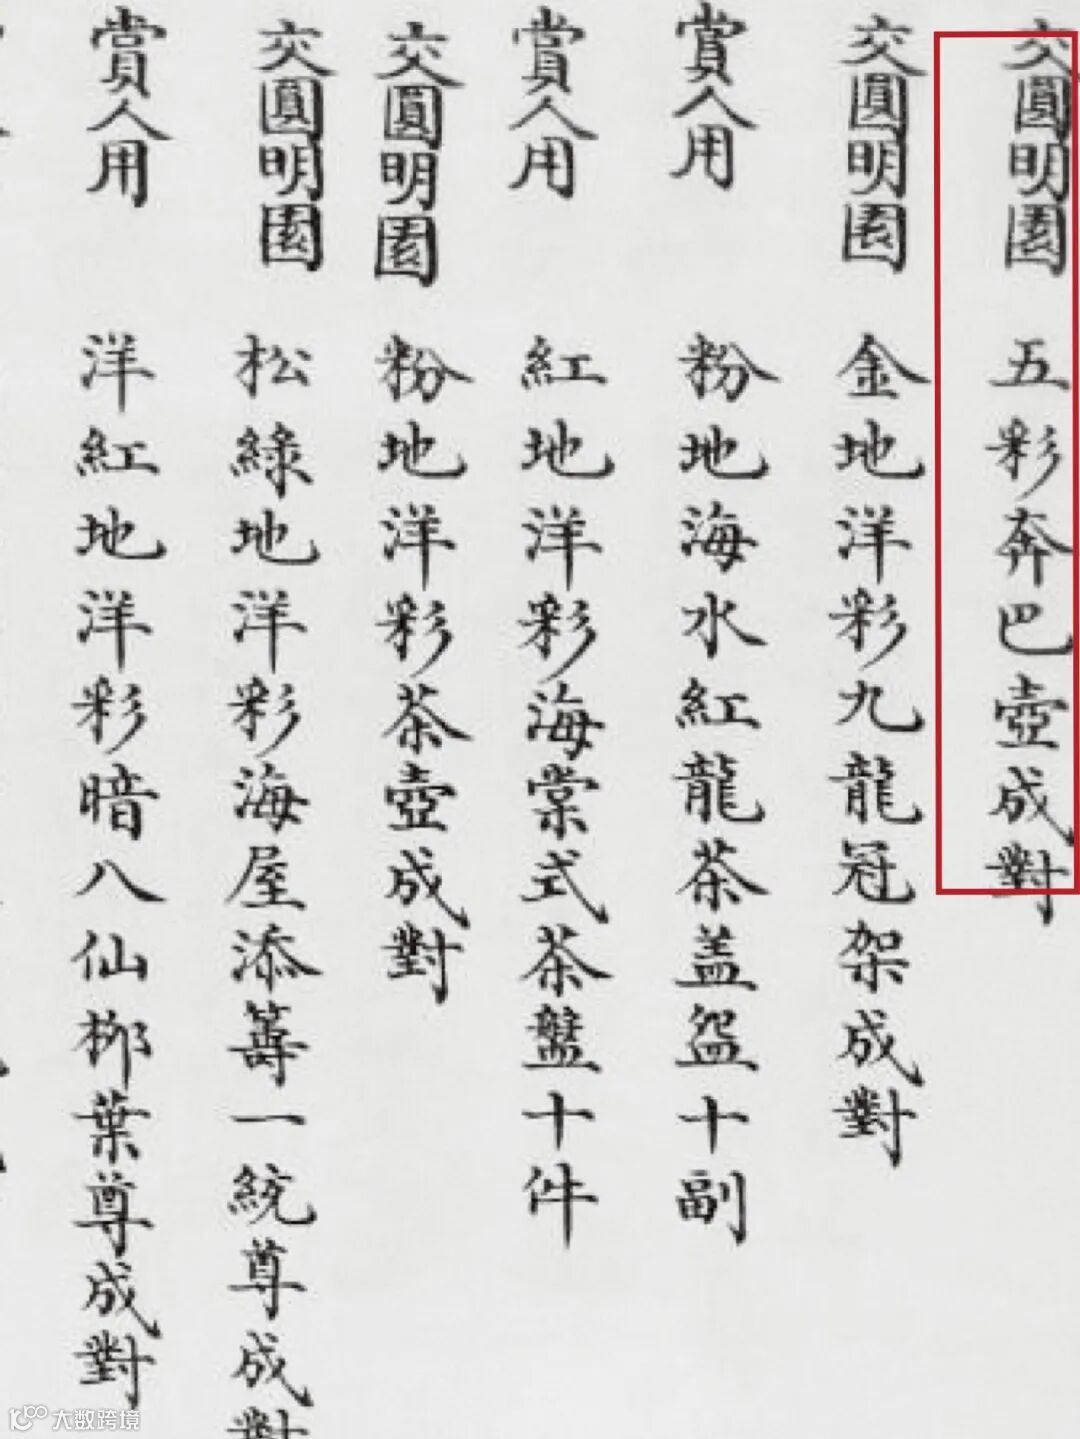 交圓明園 五彩奔巴壺成對
交圓明園 金地洋彩九龍冠架成對
賞人用 粉地海水紅龍茶盖盌十副
賞人用 紅地洋彩海棠式茶盤十件
交圓明園 粉地洋彩茶壺成對
交圓明園 松綠地洋彩海屋添籌一統尊成對
賞人用 洋紅地洋彩暗八仙栁葉尊成對
大数跨境